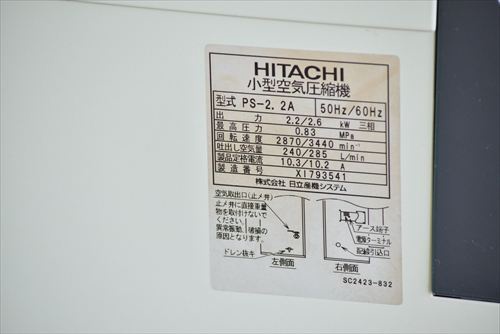 HITACHI
小型空気圧縮機
型式 PS-2.2A 50Hz/60Hz
出力 2.2/2.6 kW 三相
最高圧力 0.83 MPa
回転速度 2870/3440 min⁻¹
吐出し空気量 240/285 L/min
製品定格電流 10.3/10.2 A
製造番号 X1793541
株式会社 日立産機システム
空気取出口(止メ弁)
止メ弁に直接重量
物を取付けないで
ください。
異常振動、破損の
原因となります。
ドレン抜キ
左側面
アース端子
電源ターミナル
配線引込口
右側面
SC2423-832